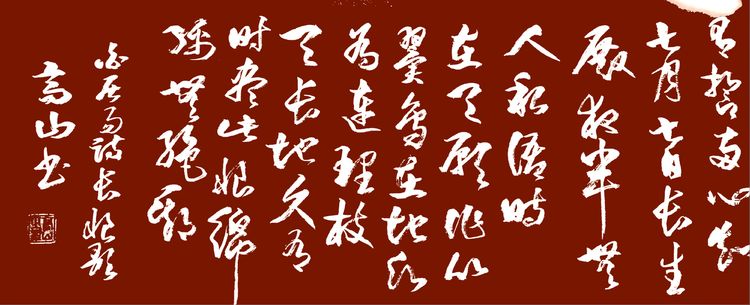 有誓两心知
七月七日长生
殿夜半無
人私语时
在天愿作比
翼鸟在地愿
为連理枝
天长地久有
时尽此恨绵
绵無绝期
白居易诗长恨歌
高山书